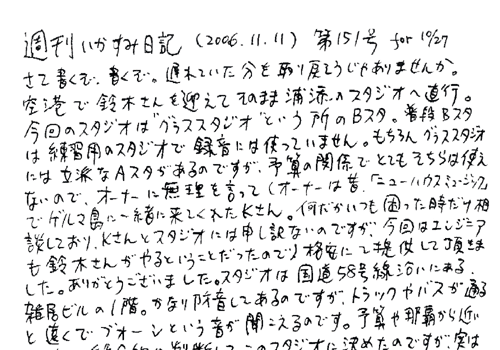 週刊いかすみ日記 (2006.11.11) 第151号 for 10/27
さて書くぞ、書くぞ。遅れていた分を取り戻そうじゃありませんか。
空港で鈴木さんを迎えてそのまま浦添のスタジオへ直行。
今回のスタジオは"グラススタジオ"という所のBスタ。普段Bスタ
は練習用のスタジオで録音には使っていません。もちろんグラススタジオ
には立派なAスタがあるのですが、予算の関係でとてもそちらは使え
ないので、オーナーに無理を言って(オーナーは昔、「ニューハウスミュージック」
でゲルマ島に一緒に来てくれたKさん。何だかいつも困った時だけ相
談しており、Kさんとスタジオには申し訳ないのですが、今回はエンジニア
も鈴木さんがやるということだったので)格安にて提供して頂きま
した。ありがとうございました。スタジオは国道58号線沿いにある
雑居ビルの1階。かなり防音してあるのですが、トラックやバスが通る
と遠くでブオーンという音が聞こえるのです。予算や那覇から近い
このスタジオに決めたのですが、実は